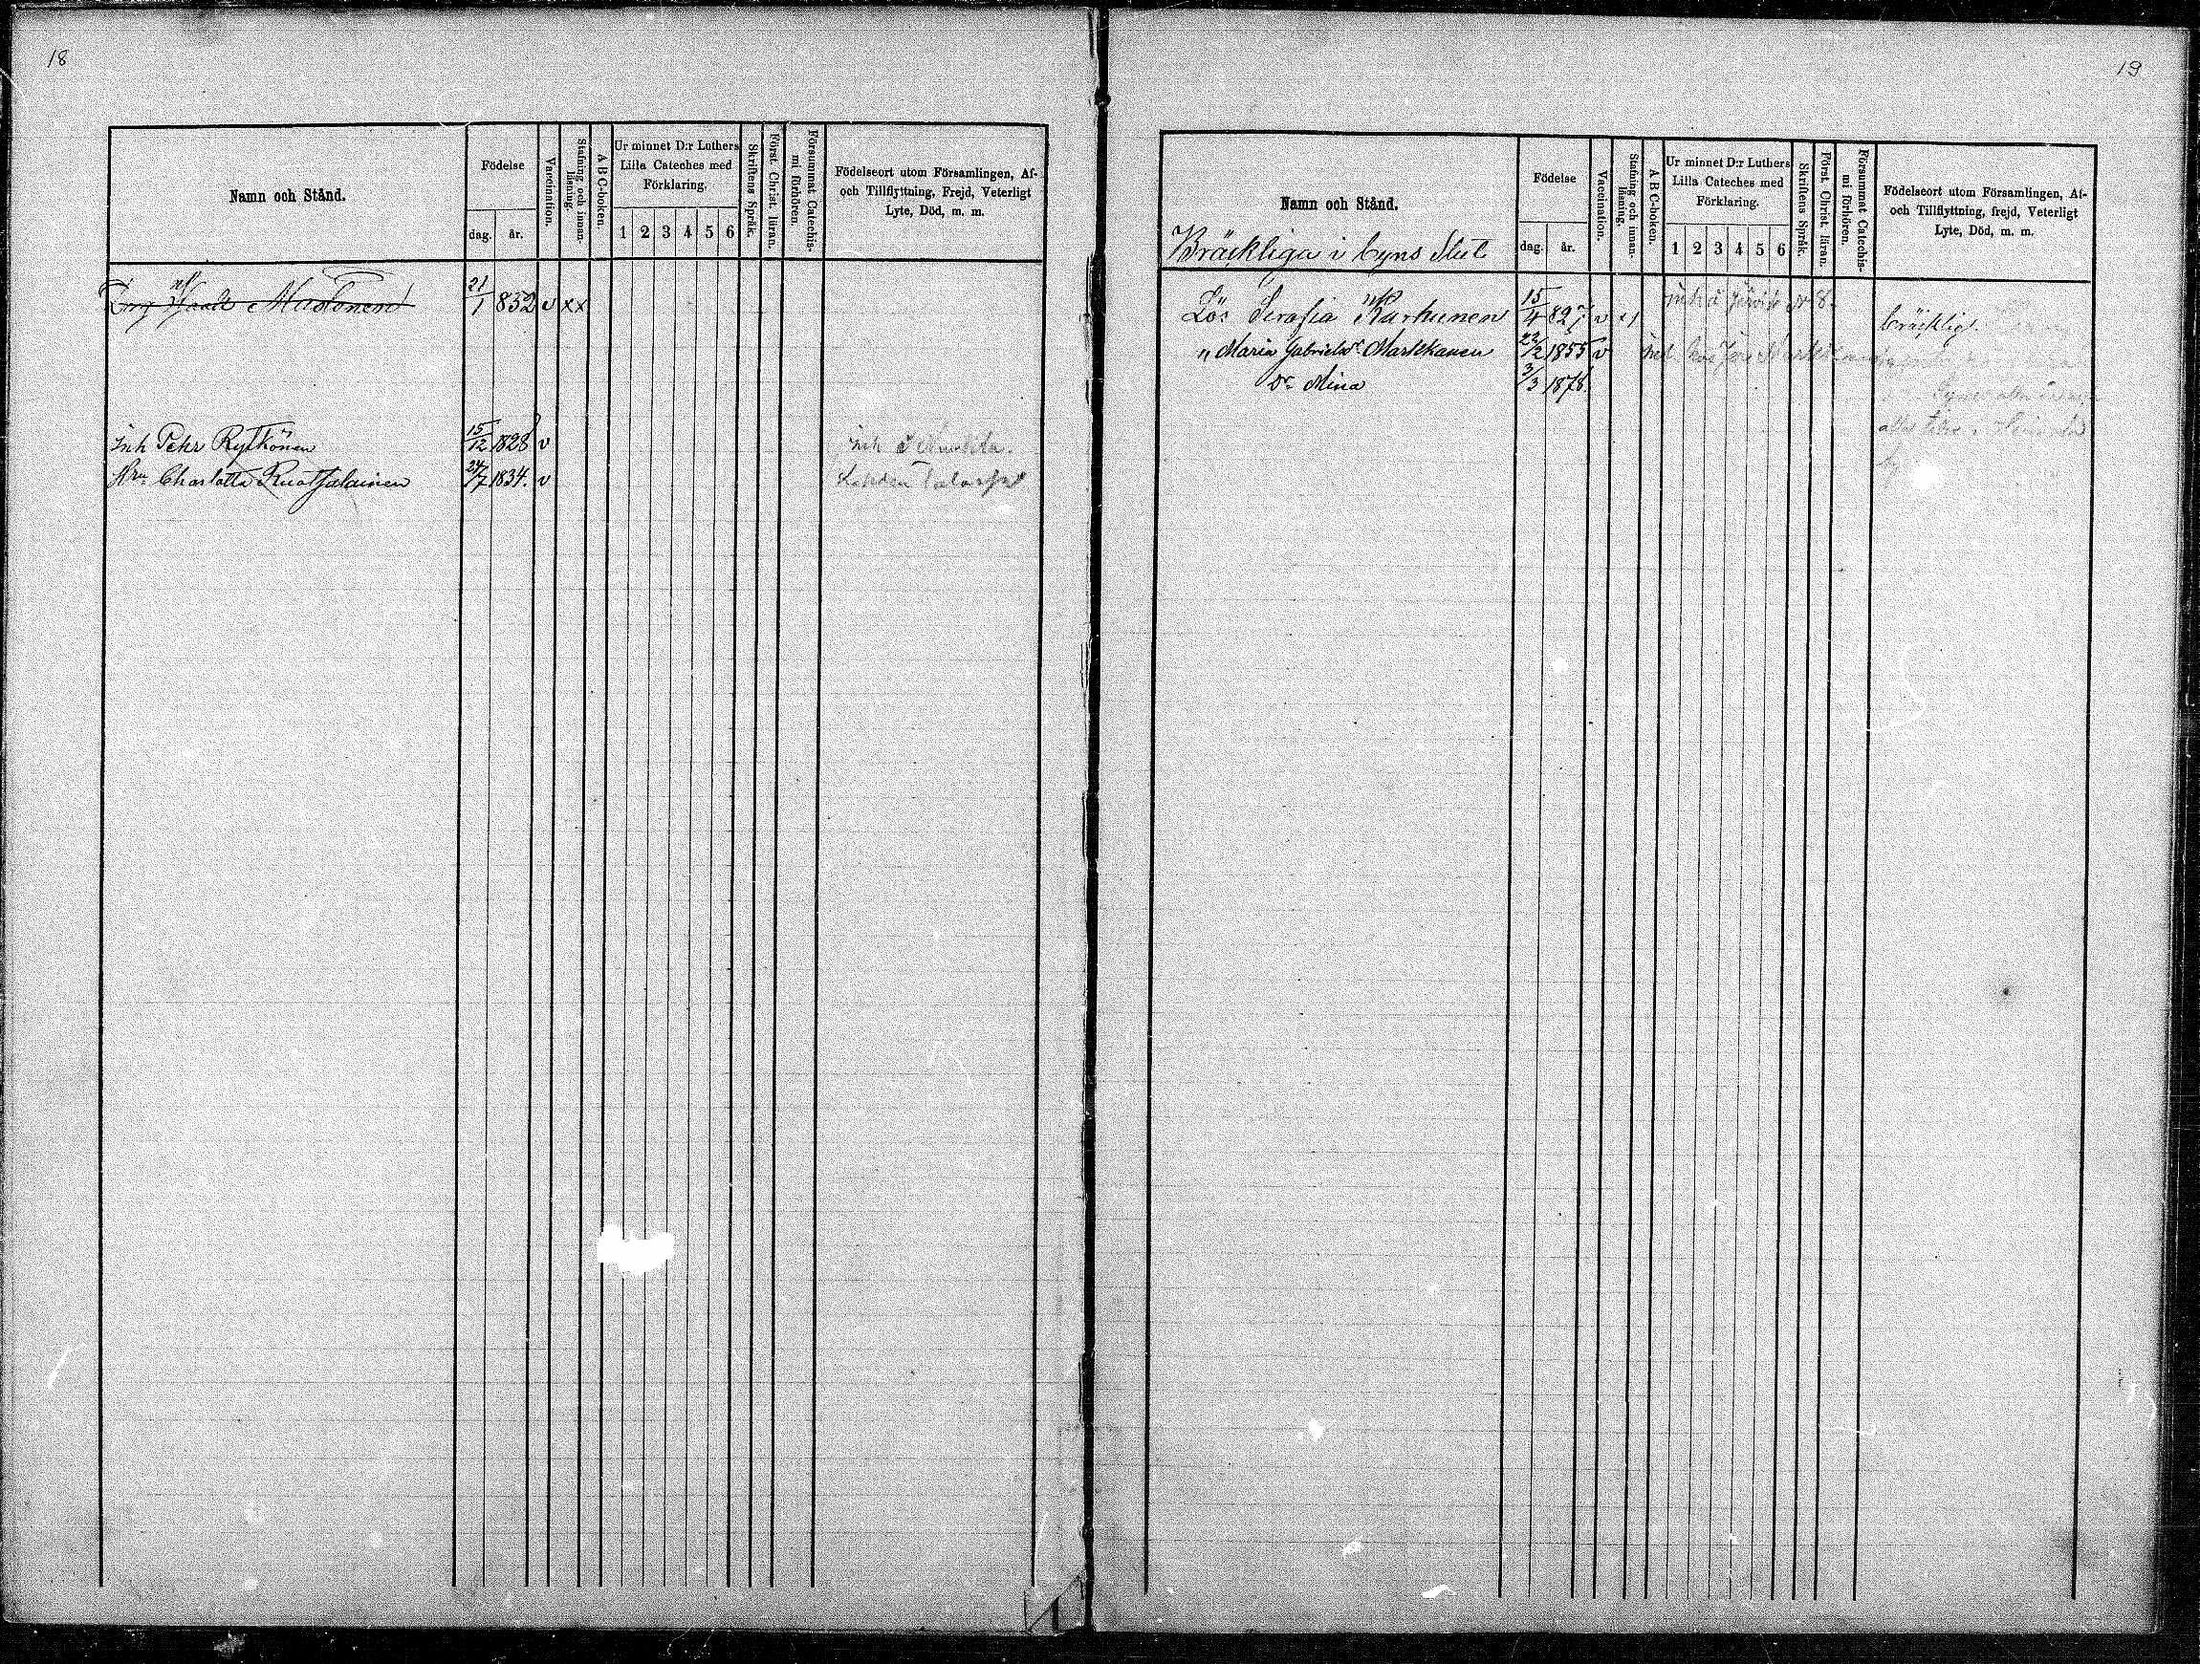 18
Namn och Stånd.
Födelse
dag.
år.
Vaccination.
Stafning och innan-läsning.
A B C-boken.
Ur minnet D:r Luthers
Lilla Cateches med
Förklaring.
1 2 3 4 5 6
Skriftens Språk.
Först. Christ. läran.
Försummat Catechis-
mi förhören.
Födelseort utom Församlingen, Af-
och Tillflyttning, Frejd, Veterligt
Lyte, Död, m. m.
21/1 852 v x x
Inh Pehr Rytkönen 15/12 1828 v
Hru Charlotta Ruotsalainen 24/7 1834. v
19
Namn och Stånd.
Bräckliga i byns Slut
Födelse
dag.
år.
Vaccination.
Stafning och innan-läsning.
A B C-boken.
Ur minnet D:r Luthers
Lilla Cateches med
Förklaring.
1 2 3 4 5 6
Skriftens Språk.
Först. Christ. läran.
Försummat Catechis-
mi förhören.
Födelseort utom Församlingen, Af-
och Tillflyttning, frejd, Veterligt
Lyte, Död, m. m.
Lös Serafia Karhunen 15/4 827 v bräcklig.
" Maria Gabrielsdr Martikanen 22/2 1855 v
Dr Mina 3/3 1878.